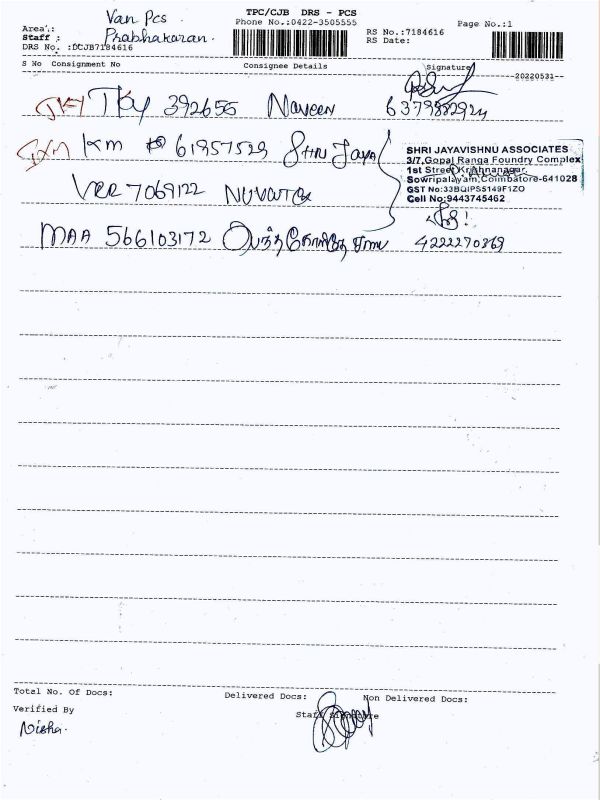 TPC/CJB DRS - PCS
Phone No.:0422-3505555
Page No.:1
Area : Van Pcs
Staff : Prabhakaran.
DRS No. :DCJB7184616
RS No.:7184616
RS Date:
S No Consignment No Consignee Details Signature
20220531
TKY 392655 Naveen 6379882924
KM 61957529 Shri Jaya
SHRI JAYAVISHNU ASSOCIATES
3/7,Gopal Ranga Foundry Complex
1st Street, Krishnanagar,
Sowripalayam,Coimbatore-641028
GST No:33BQIPS5149F1ZO
Cell No:9443745462
VCR 7069122
MAA 566103172 4222270869
Total No. Of Docs: Delivered Docs: Non Delivered Docs:
Verified By Staff Signature
Nisha.